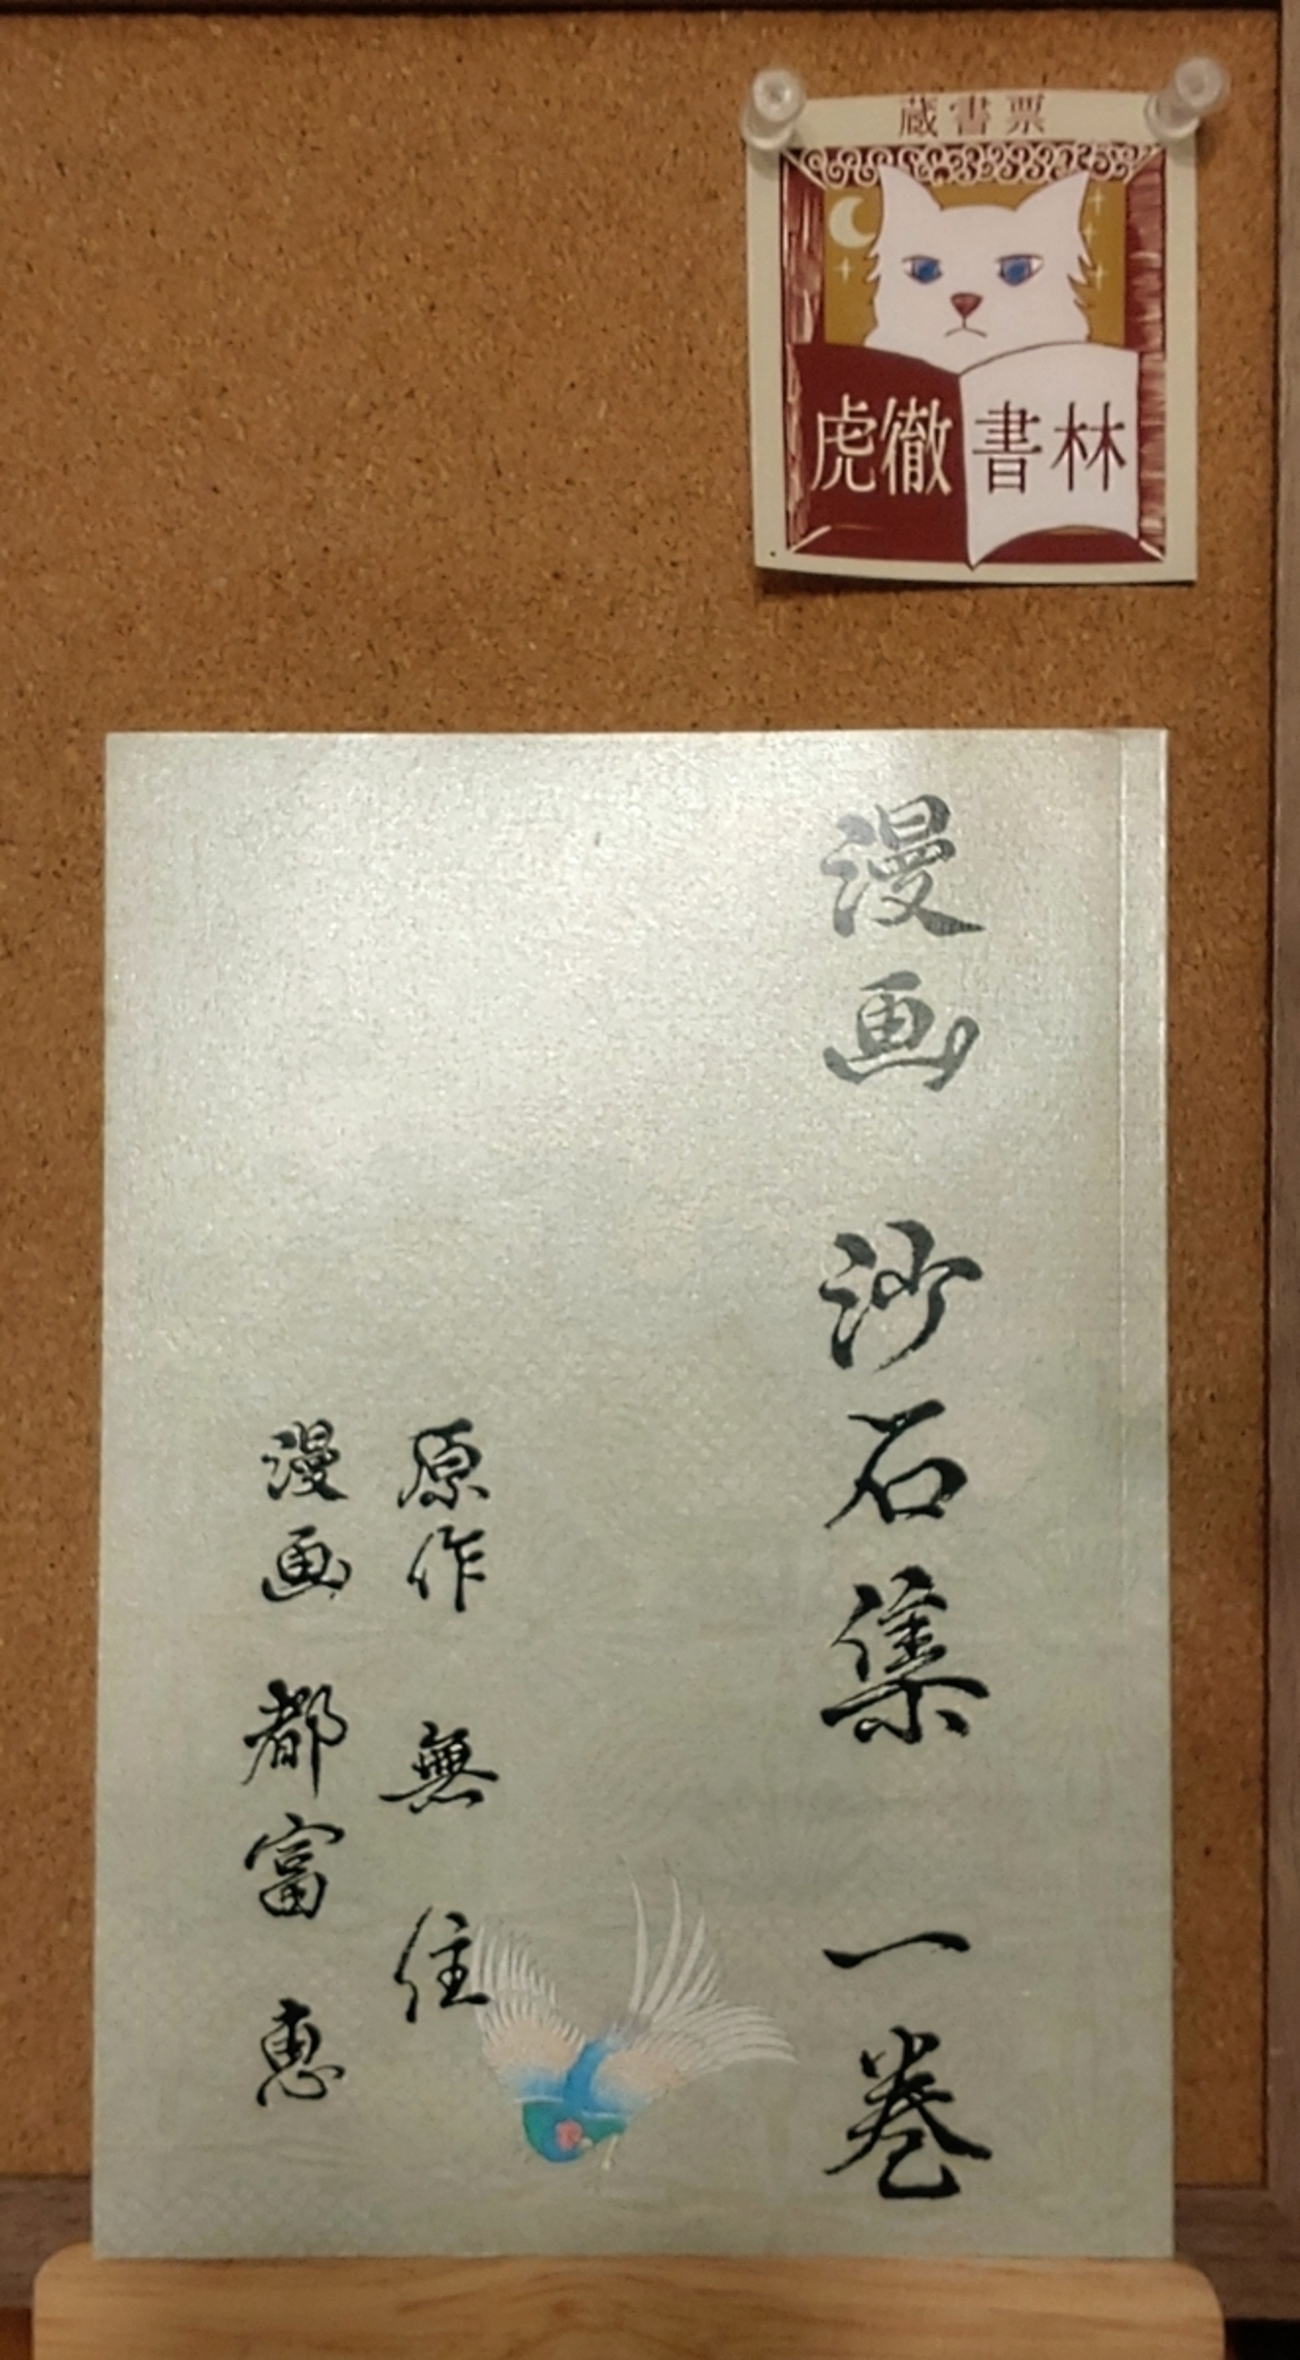 蔵書票
虎徹書林
漫画 沙石集 一巻
原作 無住
漫画 都富恵